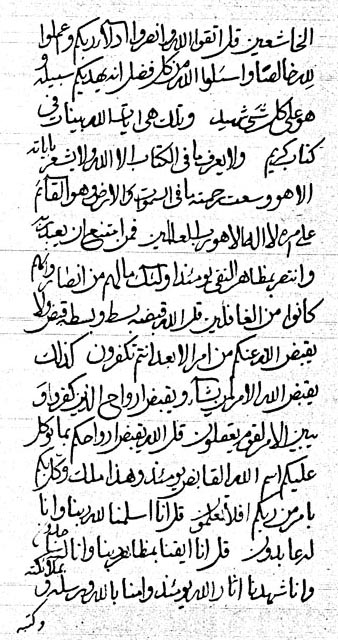 الخاشعين قل اتقوا الله وانصروا ادلاء ربكم وعملوا
لله خالصا واسئلوا الله من كل فضل انه يهديكم سبيله
هو على كل شيء شهيد وتلك هي ايات الله بينات في
كتاب كريم ولا يعرف ما في الكتاب الا الله ولا يشعر باياته
الا هو وسعت رحمته ما في السموات والارض وهو القائم
على امره لا اله الا هو رب العالمين فمن امتنع ان يعبد
وانتصر بمظاهر النفي يومئذ اولئك ما لهم من انصار وانهم
كانوا من الغافلين قل الله قبضه بسط وبسطه قبض ولا
يقبض الله عنكم من امر الا بعد انتم تكفرون كذلك
يقبض الله الامر لمن يشاء ويقبض ارواح الذين كفروا
يبين الامر لقوم يعقلون قل الله يقبض ارواحكم بما توكل
عليكم اسم الله القابض يومئذ وهذا ملك وكل بكم
بامر من ربكم افلا تعلمون قل انا اسلمنا لله ربنا وانا
له عابدون قل انا ايقنا بمظاهر ربنا وانا
وانا شهدنا اثار الله يومئذ وامنا بالله وبرسله
وكتبه